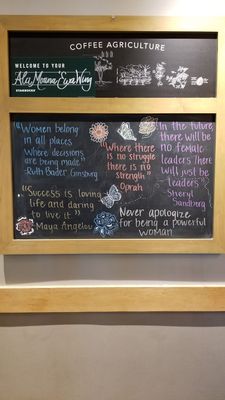 COFFEE AGRICULTURE
WELCOME TO YOUR
Ala Moana 'Ewa Wing
STARBUCKS
"Women belong
in all places
Where decisions
are being made"
-Ruth Bader Ginsburg
"Where there
is no struggle
there is no
strength"
Oprah
"In the future
there will be
no female
leaders. There
will just be
leaders"
Sheryl
Sandberg
"Success is loving
life and daring
to live it"
Maya Angelou
Never apologize
for being a powerful
woman